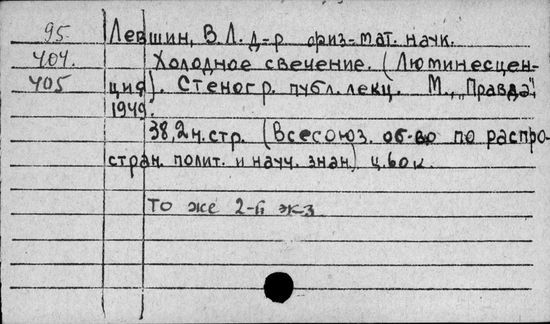 95 Левшин, В.Л. д-р физ-мат. наук.
404. Холодное свечение. (Люминесцен-
405 ция). Стеногр. публ. лекц. М., „Правда",
1949.
38,2н.стр. (Всесоюз. об-во по распро-
стран. полит. и научн. знан.) ц. 60 к.
то же 2-й экз.